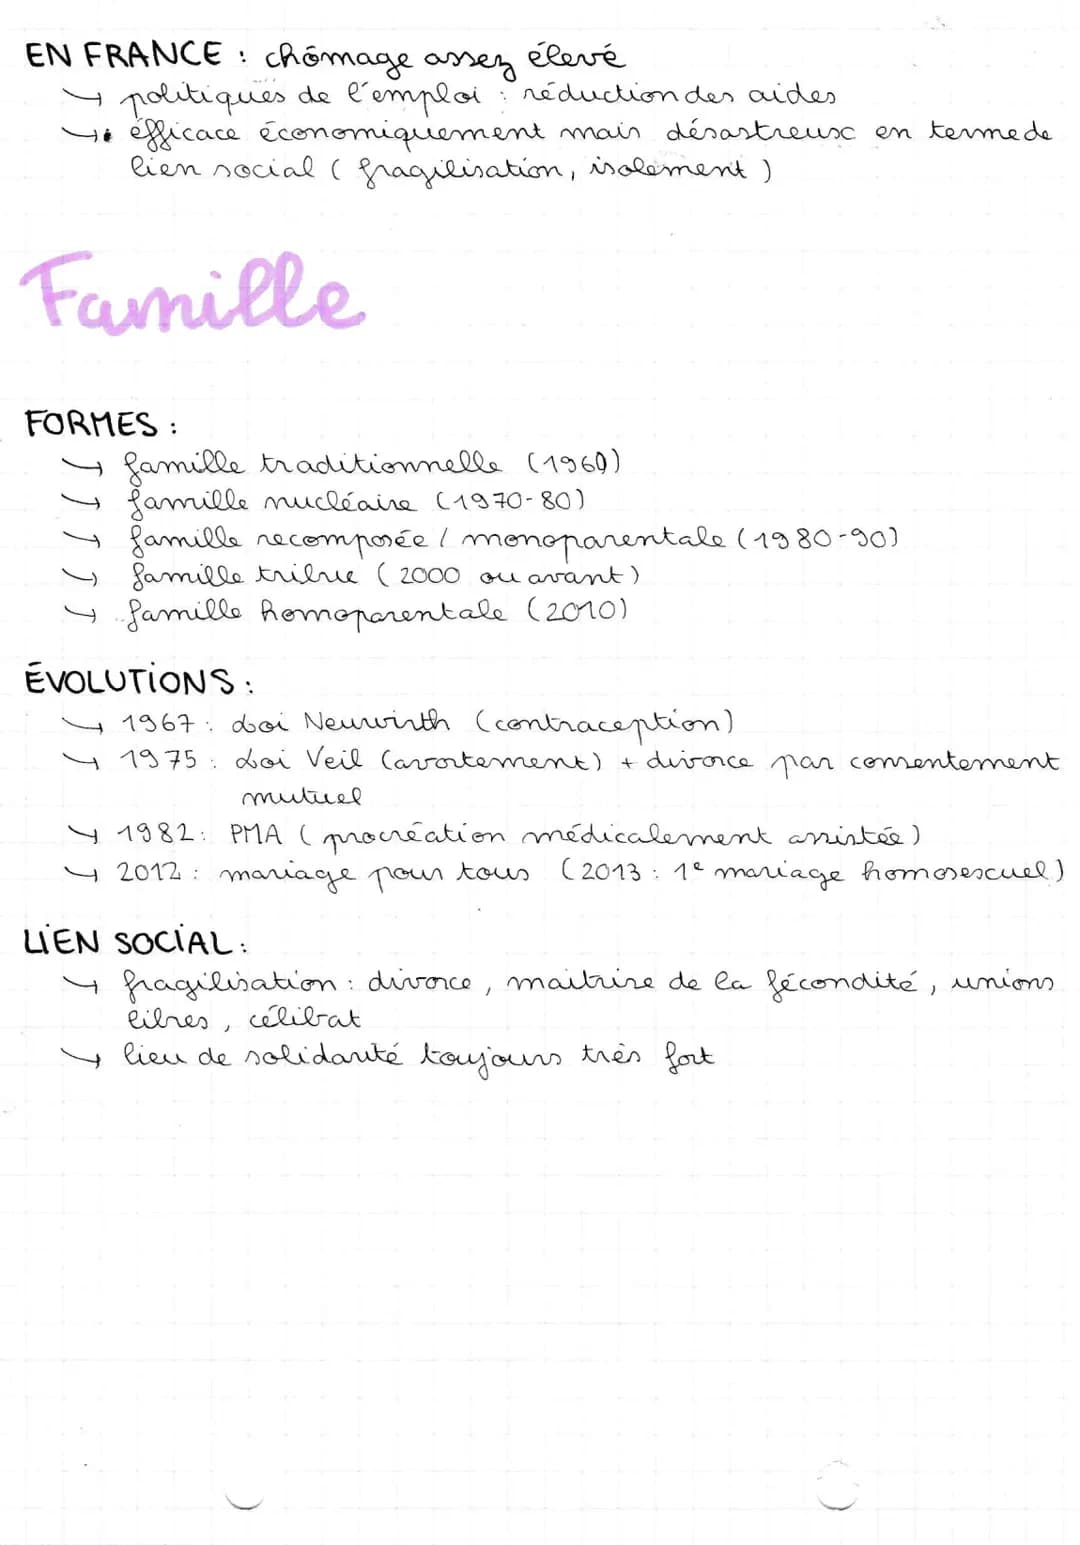 EN FRANCE : chômage assez élevé
↳ politiques de l'emploi : réduction des aides
↳ éfficace économiquement mais désastreux en terme de
lien social ( fragilisation, isolement )
Famille
FORMES :
↳ famille traditionnelle (1960)
↳ famille nucléaire (1970-80)
↳ famille recomposée / monoparentale (1980-90)
↳ famille tribue ( 2000 ou avant)
↳ famille homoparentale (2010)
ÉVOLUTIONS :
↳ 1967 : Loi Neuwirth (contraception)
↳ 1975 : Loi Veil (avortement) + divorce par consentement
mutuel
↳ 1982 : PMA ( procréation médicalement assistée )
↳ 2012 : mariage pour tous (2013 : 1e mariage homosexuel)
LIEN SOCIAL :
↳ fragilisation : divorce, maitrise de la fécondité, unions
libres, célibat
↳ lieu de solidarité toujours très fort